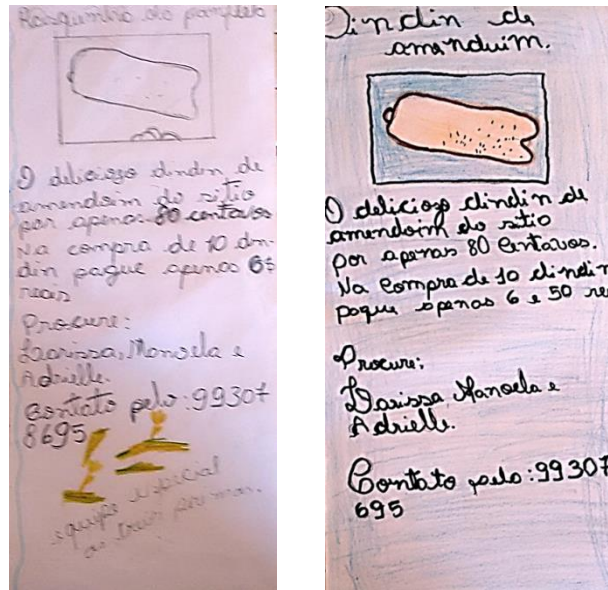 Rasquinho do panfleto
O deliciozo dindin de
amendoim do sitio
por apenas 80 centavos
Na compra de 10 din-
din pague apenas 6$
reais
Procure:
Larissa, Manoela e
Adrielle.
Contato pelo: 99307
8695
equipe especial
as irmãs
Dindin de
amenduim.
O deliciozo dindin de
amendoim do sitio
por apenas 80 Centavos.
Na Compra de 10 dindin
pague apenas 6 e 50 re
Procure:
Larissa, Manoela e
Adrielle.
Contato pelo: 99307
695